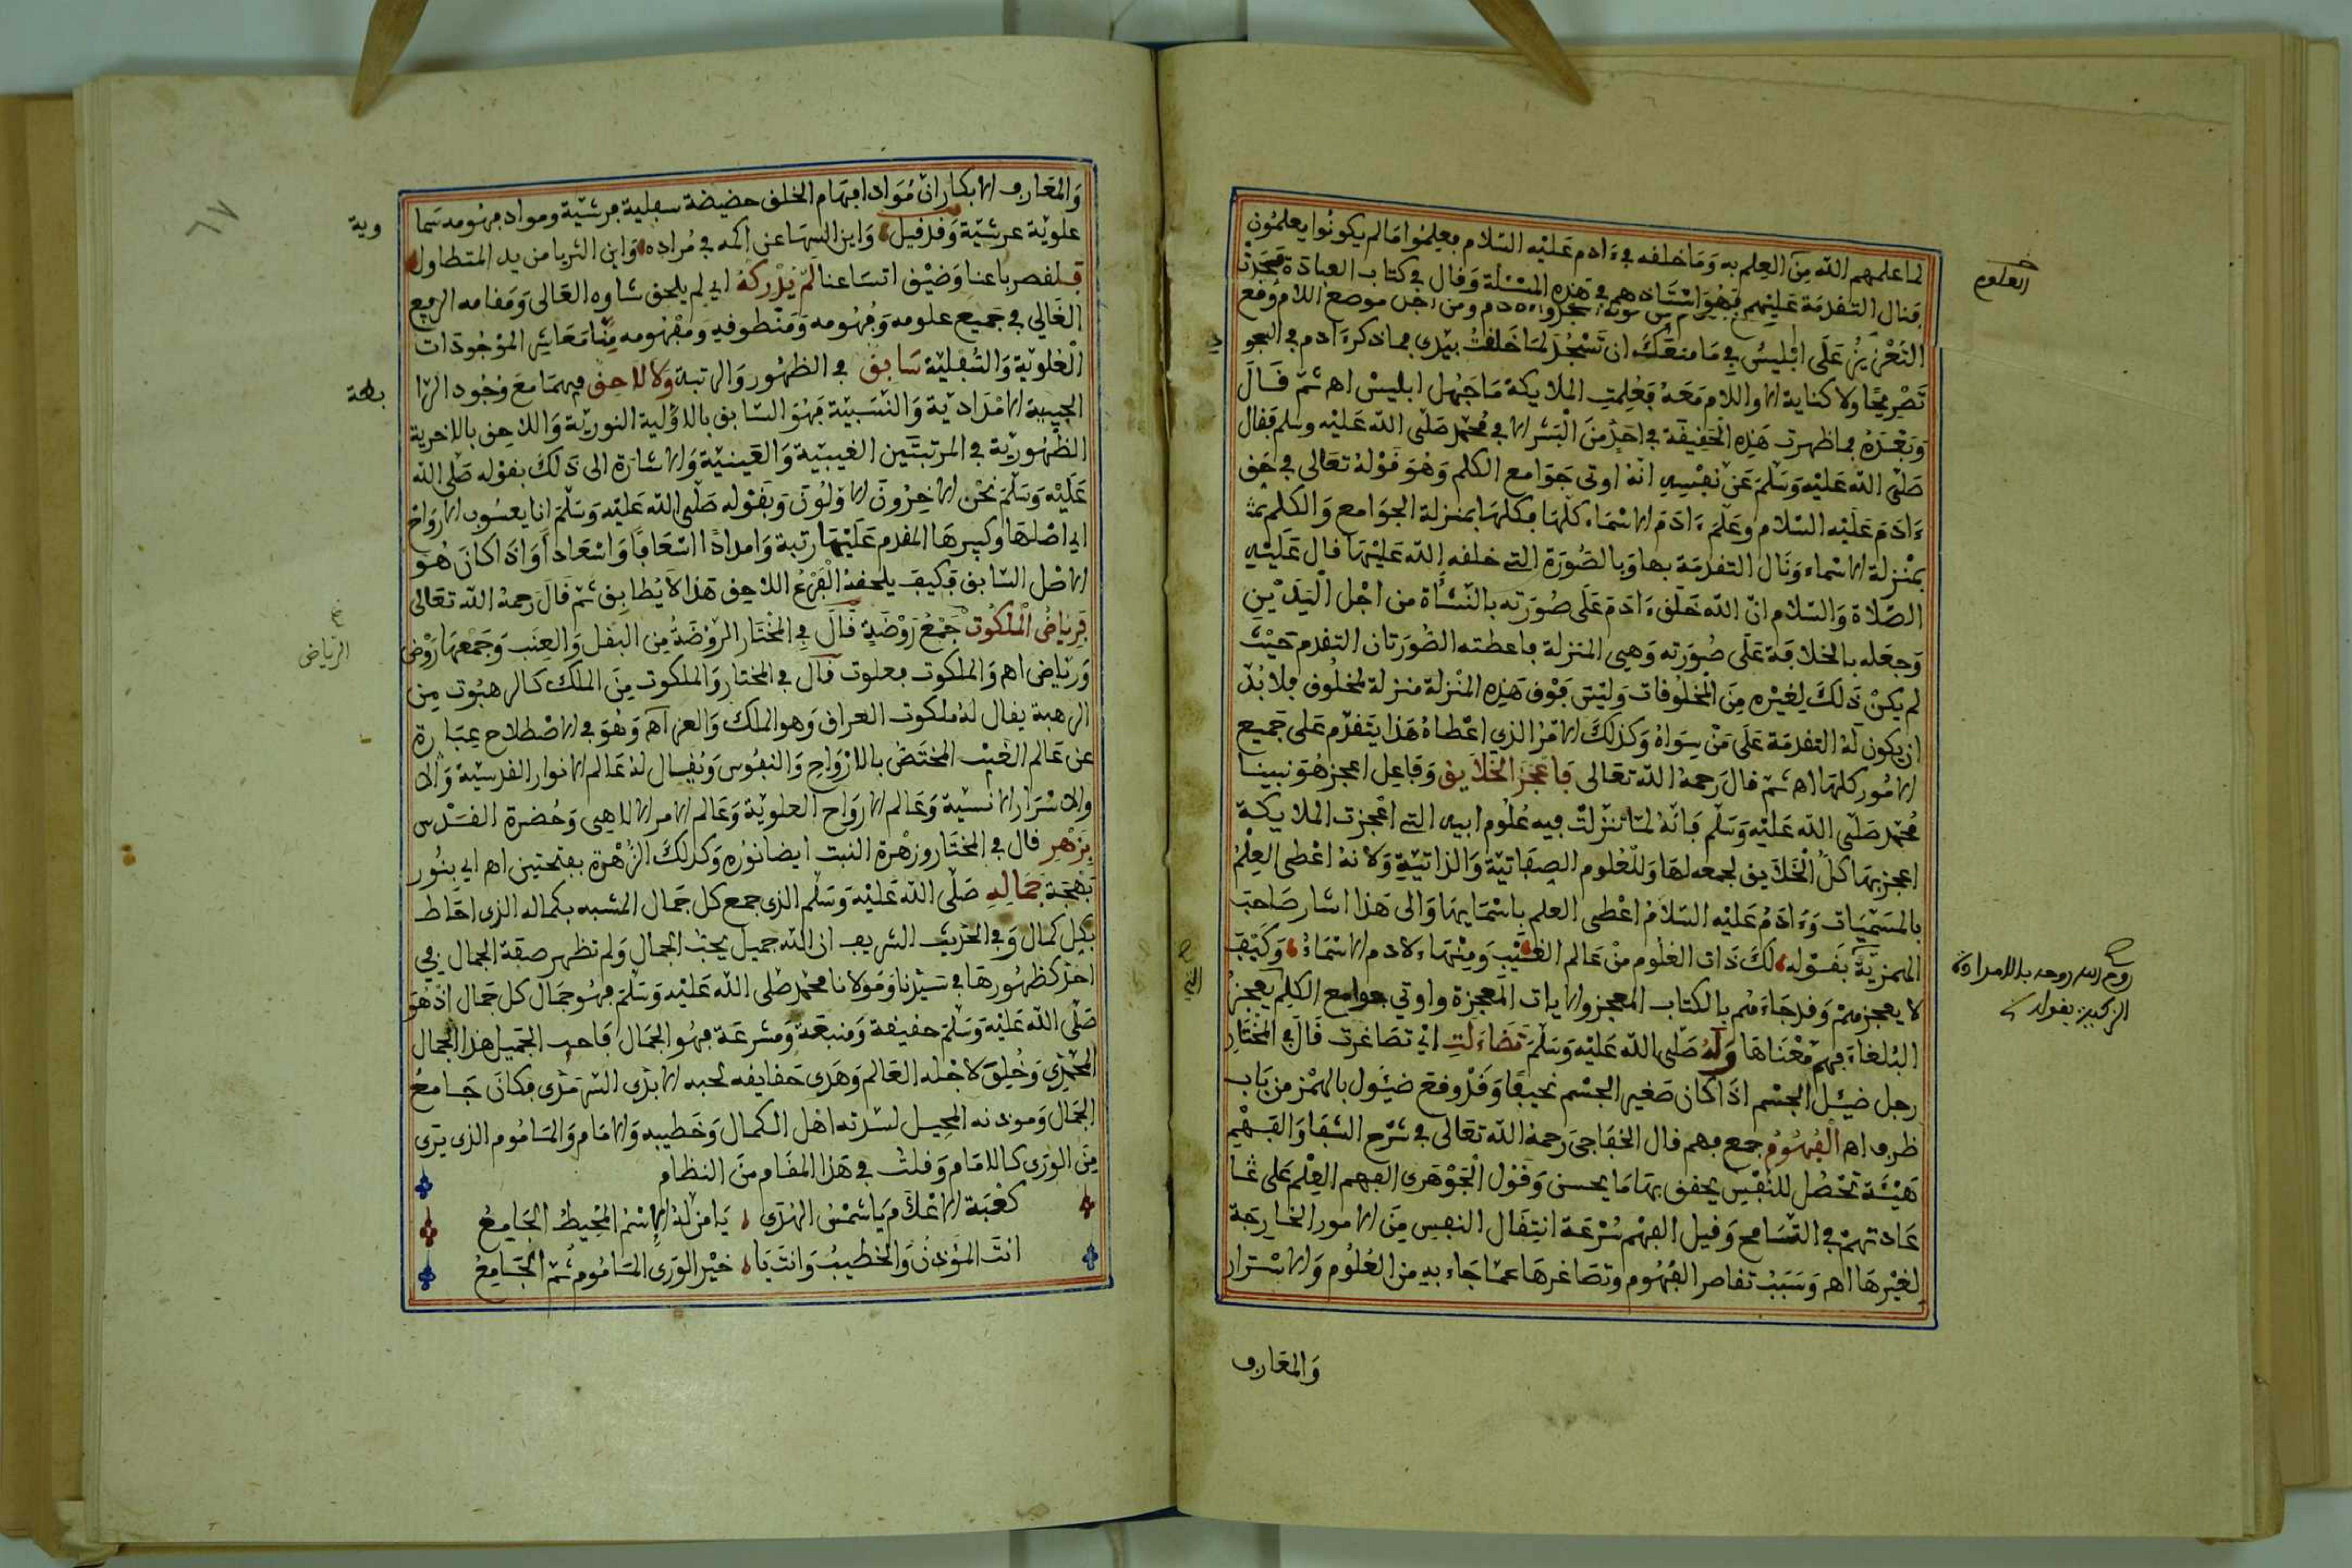 لما علمهم الله من العلم به وما خلفه في ءادم عليه السلام فعلموا ما لم يكونوا يعلمون
فنال التقدمة عليهم فهو استاذهم في هذه المسئلة وقال في كتاب العبادة
التعزيز على ابليس في ما منعك ان تسجد لما خلقت بيدي فما ذكر ءادم في
تصريحا ولا كناية الا واللام معه فعلمت الملايكة ما جهل ابليس اهـ ثم قال
وبعده فما ظهرت هذه الحقيقة في احد من البشر الا في محمد صلى الله عليه وسلم فقال
صلى الله عليه وسلم عن نفسه انه اوتي جوامع الكلم وهو قوله تعالى في حق
ءادم عليه السلام وعلم ءادم الاسماء كلها فكلها بمنزلة الجوامع والكلم
بمنزلة الاسماء ونال التقدمة بها وبالصورة التي خلقه الله عليها قال عليه
الصلاة والسلام ان الله خلق ءادم على صورته بالنشأة من اجل اليدين
وجعله بالخلافة على صورته وهي المنزلة فاعطته الصورتان التقدم حيث
لم يكن ذلك لغيره من المخلوقات وليس فوق هذه المنزلة منزلة لمخلوق فلا بد
ان يكون له التقدمة على من سواه وكذلك الامر الذي اعطاه هذا يتقدم على جميع
الامور كلها اهـ ثم قال رحمه الله تعالى فاعجز الخلايق وفاعل اعجز هو نبينا
محمد صلى الله عليه وسلم فانه لما تنزلت فيه علوم ابيه التي اعجزت الملايكة
اعجز بها كل الخلايق لجمعه لها وللعلوم الصفاتية والذاتية ولانه اعطي العلم
بالمسميات وءادم عليه السلام اعطي العلم باسمايها والى هذا اشار صاحب
الهمزية بقوله لك ذات العلوم من عالم الغيب ومنها لادم الاسماء وكيف
لا يعجزهم وقد جاءهم بالكتاب المعجز والايات المعجزة واوتي جوامع الكلم يعجز
البلغاء فهم معناها وله صلى الله عليه وسلم تضاءلت اي تصاغرت قال في المختار
رجل ضئيل الجسم اذا كان صغير الجسم نحيفا وقد وقع ضئول بالهمز من باب
ظرف اهـ الفهوم جمع فهم قال الخفاجي رحمه الله تعالى في شرح الشفا والفهم
هيئة تحصل للنفس يحقق بها ما يحسن وقول الجوهري الفهم العلم على
عادتهم في التسامح وقيل الفهم سرعة انتقال النفس من الامور الخارجة
لغيرها اهـ وسبب تقاصر الفهوم وتصاغرها عما جاء به من العلوم والاسرار
والمعارف
العلوم
والمعارف الابكار ان مواد افهام الخلق حضيضة سفلية فرشية ومواد فهومه سما
وية
علوية عرشية وقد قيل واين السها عن اكمه في مراده واين الثريا من يد المتطاول
فلقصر باعنا وضيق اتساعنا لم يدركه اي لم يلحق شاوه العالى ومقامه الرفيع
الغالي في جميع علومه وفهومه ومنطوقه ومفهومه منا معاشر الموجودات
العلوية والسفلية سابق في الظهور والرتبة ولا لاحق فيهما مع وجود الرا
بطة
الحبيبية الامدادية والنسبية فهو السابق بالاولية النورية واللاحق بالاخرية
الظهورية في المرتبتين الغيبية والعينية والاشارة الى ذلك بقوله صلى الله
عليه وسلم نحن الاخرون الاولون وبقوله صلى الله عليه وسلم انا يعسوب الارواح
اي اصلها وكبيرها المقدم عليها رتبة وامدادا اسعافا واسعادا واذا كان هو
الاصل السابق فكيف يلحقه الفرع اللاحق هذا لا يطابق ثم قال رحمه الله تعالى
فرياض الملكوت جمع روضة قال في المختار الروضة من البقل والعنب وجمعها روض
الرياض
ورياض اهـ والملكوت فعلوت قال في المختار والملكوت من الملك كالرهبوت من
الرهبة يقال له ملكوت العراق وهو الملك والعز اهـ وهو في الاصطلاح عبارة
عن عالم الغيب المختص بالارواح والنفوس ويقال له عالم الانوار القدسية والا
والاسرار الانسية وعالم الارواح العلوية وعالم الامر الالاهي وحضرة القدس
بزهر قال في المختار وزهرة النبت ايضا نوره وكذلك الزهرة بفتحتين اهـ اي بنور
بهجة جماله صلى الله عليه وسلم الذي جمع كل جمال المشبه بكماله الذي احاط
بكل كمال وفي الحديث الشريف ان الله جميل يحب الجمال ولم تظهر صفة الجمال في
احد كظهورها في سيدنا ومولانا محمد صلى الله عليه وسلم فهو جمال كل جمال اذ هو
صلى الله عليه وسلم حقيقة ومنبعه ومشرعه فهو الجمال فاحب الجميل هذا الجمال
المحمدي وخلق لاجله العالم وهدى حقايقه لحبه الابدي السرمدي فكان جامع
الجمال وموذنه المحيل لسدته اهل الكمال وخطيبه والامام والمأموم الذي يرى
من الورى كالامام وقلت في هذا المقام من النظام
كعبة الاعلام يا شمس الهدى يا من له الاسم المحيط الجامع
انت المؤذن والخطيب وانت يا خير الورى المأموم ثم الجامع